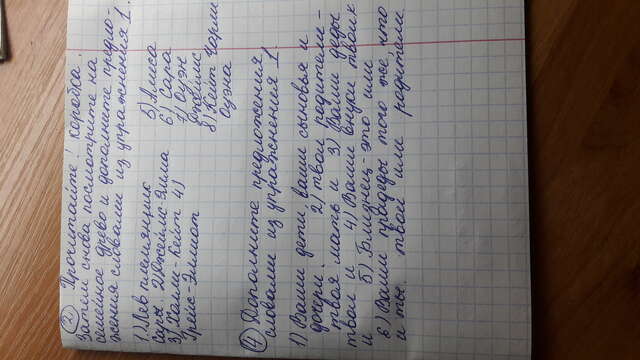 2) Прочитайте! коробка.
Затем снова посмотрите на
семейное древо и дополните предло-
жения словами из упражнения 1.
1) Лев племянник
Сары. 2) Джеймс-Эмма
3) Холли-Кейт 4)
Грейс-Эллиот
5) Алиса
6) Сара
7) Оуэн
Джеймс
8) Кейт Чарли
Оуэна
4) Дополните предложения
словами из упражнения 1.
1) Ваши дети, ваши сыновья и
дочери. 2) твои родители-
твоя мать и 3) Ваши деды
твои и 4) Ваши внуки твоих
и 5) Близнец-это или
6) Ваши прадеды того же, что
и ты. твои или родители.